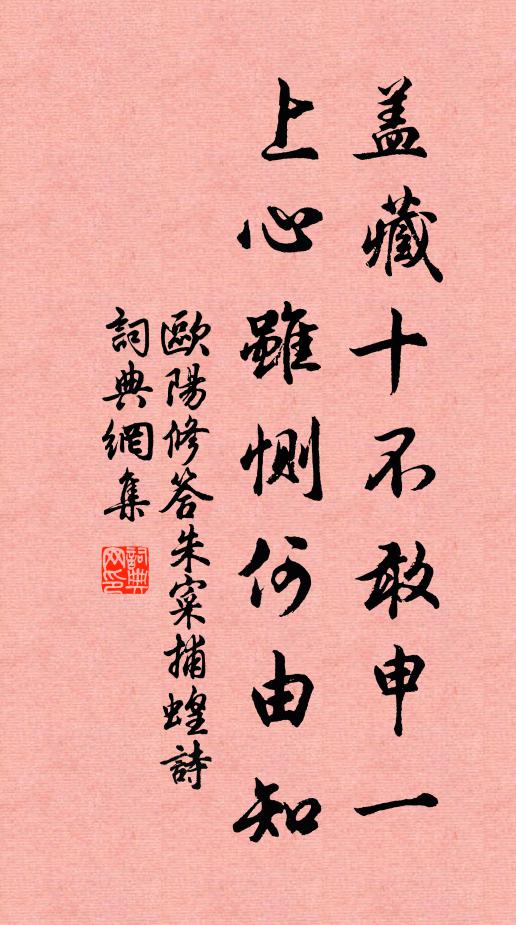 盖藏十不敢申一
上心雖惻何由知
歐陽修答朱寀捕蝗詩
詞典網集
詞典网印